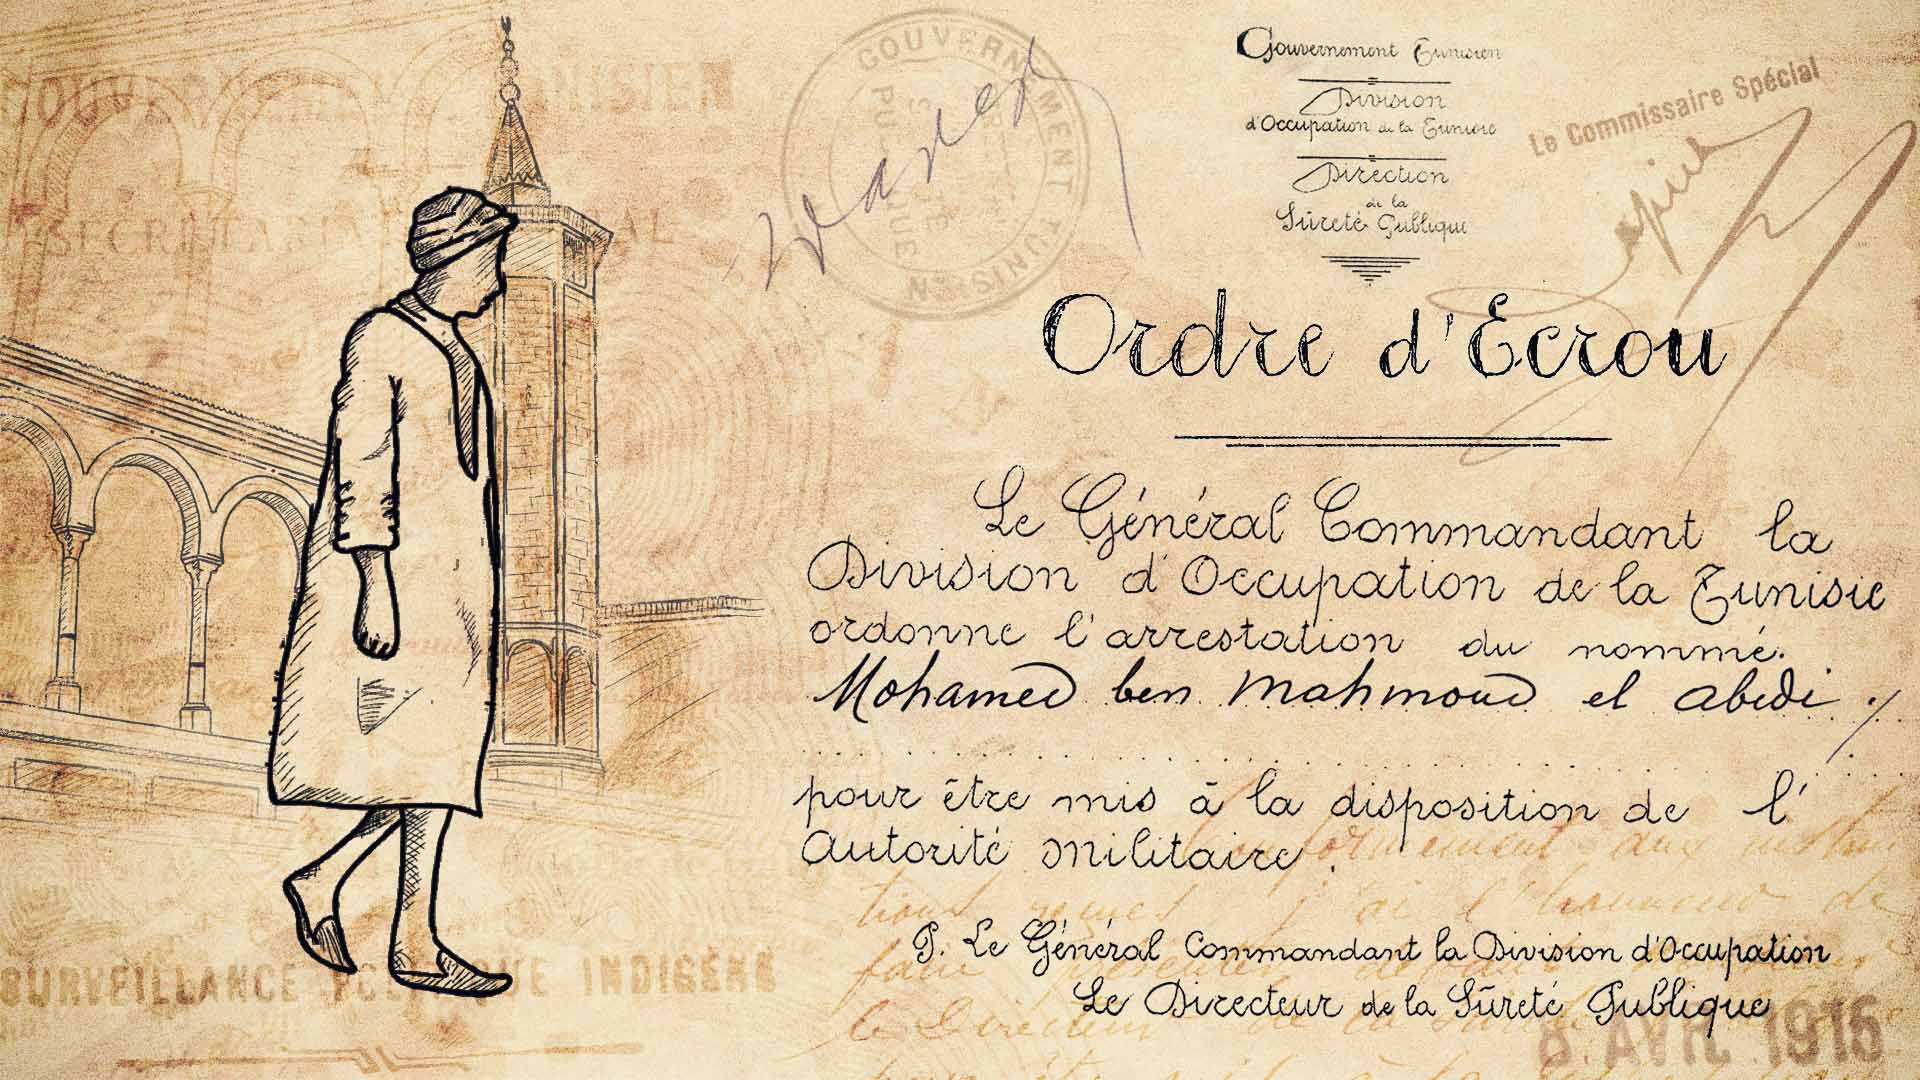 GOUVERNEMENT TUNISIEN
SECRÉTARIAT GÉNÉRAL
Gouvernement Tunisien
Division
d'Occupation de la Tunisie
Direction
de la
Sûreté Publique
Le Commissaire Spécial
Ordre d'Ecrou
Le Général Commandant la
Division d'Occupation de la Tunisie
ordonne l'arrestation du nommé.
Mohamed ben Mahmoud el abidi ./
pour être mis à la disposition de l'
Autorité Militaire.
P. Le Général Commandant la Division d'Occupation
Le Directeur de la Sûreté Publique
SURVEILLANCE POLITIQUE INDIGÈNE
8 AVRIL 1916